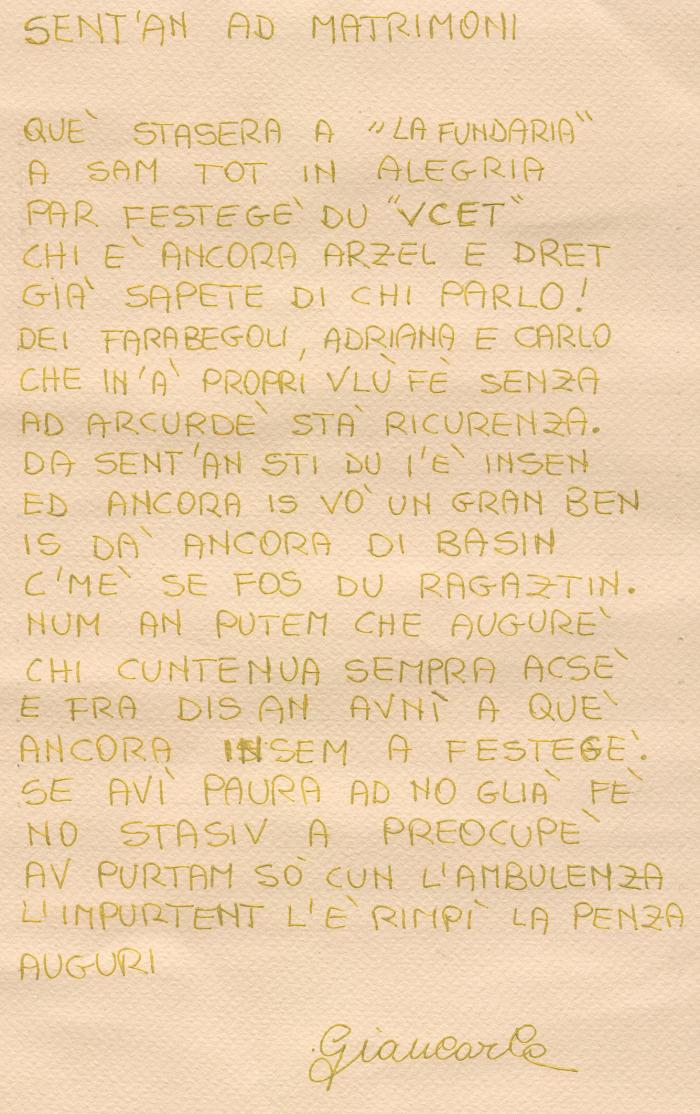 SENT'AN AD MATRIMONI
QUE' STASERA A "LA FUNDARIA"
A SAM TOT IN ALEGRIA
PAR FESTEGE' DU "VCET"
CHI E' ANCORA ARZEL E DRET
GIA' SAPETE DI CHI PARLO!
DEI FARABEGOLI, ADRIANA E CARLO
CHE IN'A' PROPRI VLÙ FÈ SENZA
AD ARCURDE' STA' RICURENZA.
DA SENT'AN STI DU I'E' INSEN
ED ANCORA IS VO' UN GRAN BEN
IS DA' ANCORA DI BASIN
C'ME' SE FOS DU RAGAZTIN.
NUM AN PUTEM CHE AUGURE'
CHI CUNTENUA SEMPRA ACSE'
E FRA DIS AN AVNÌ A QUE'
ANCORA INSEM A FESTEGE'.
SE AVI' PAURA AD NO GLIA' FE'
NO STASIV A PREOCUPE'
AV PURTAM SO' CUN L'AMBULENZA
L'IMPURTENT L'E' RIMPI' LA PENZA
AUGURI
Giancarlo